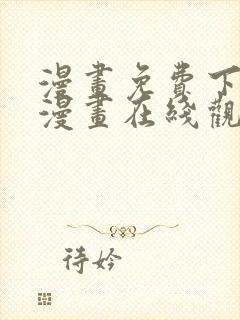 漫畫免費下
漫畫在綫觀
待妗